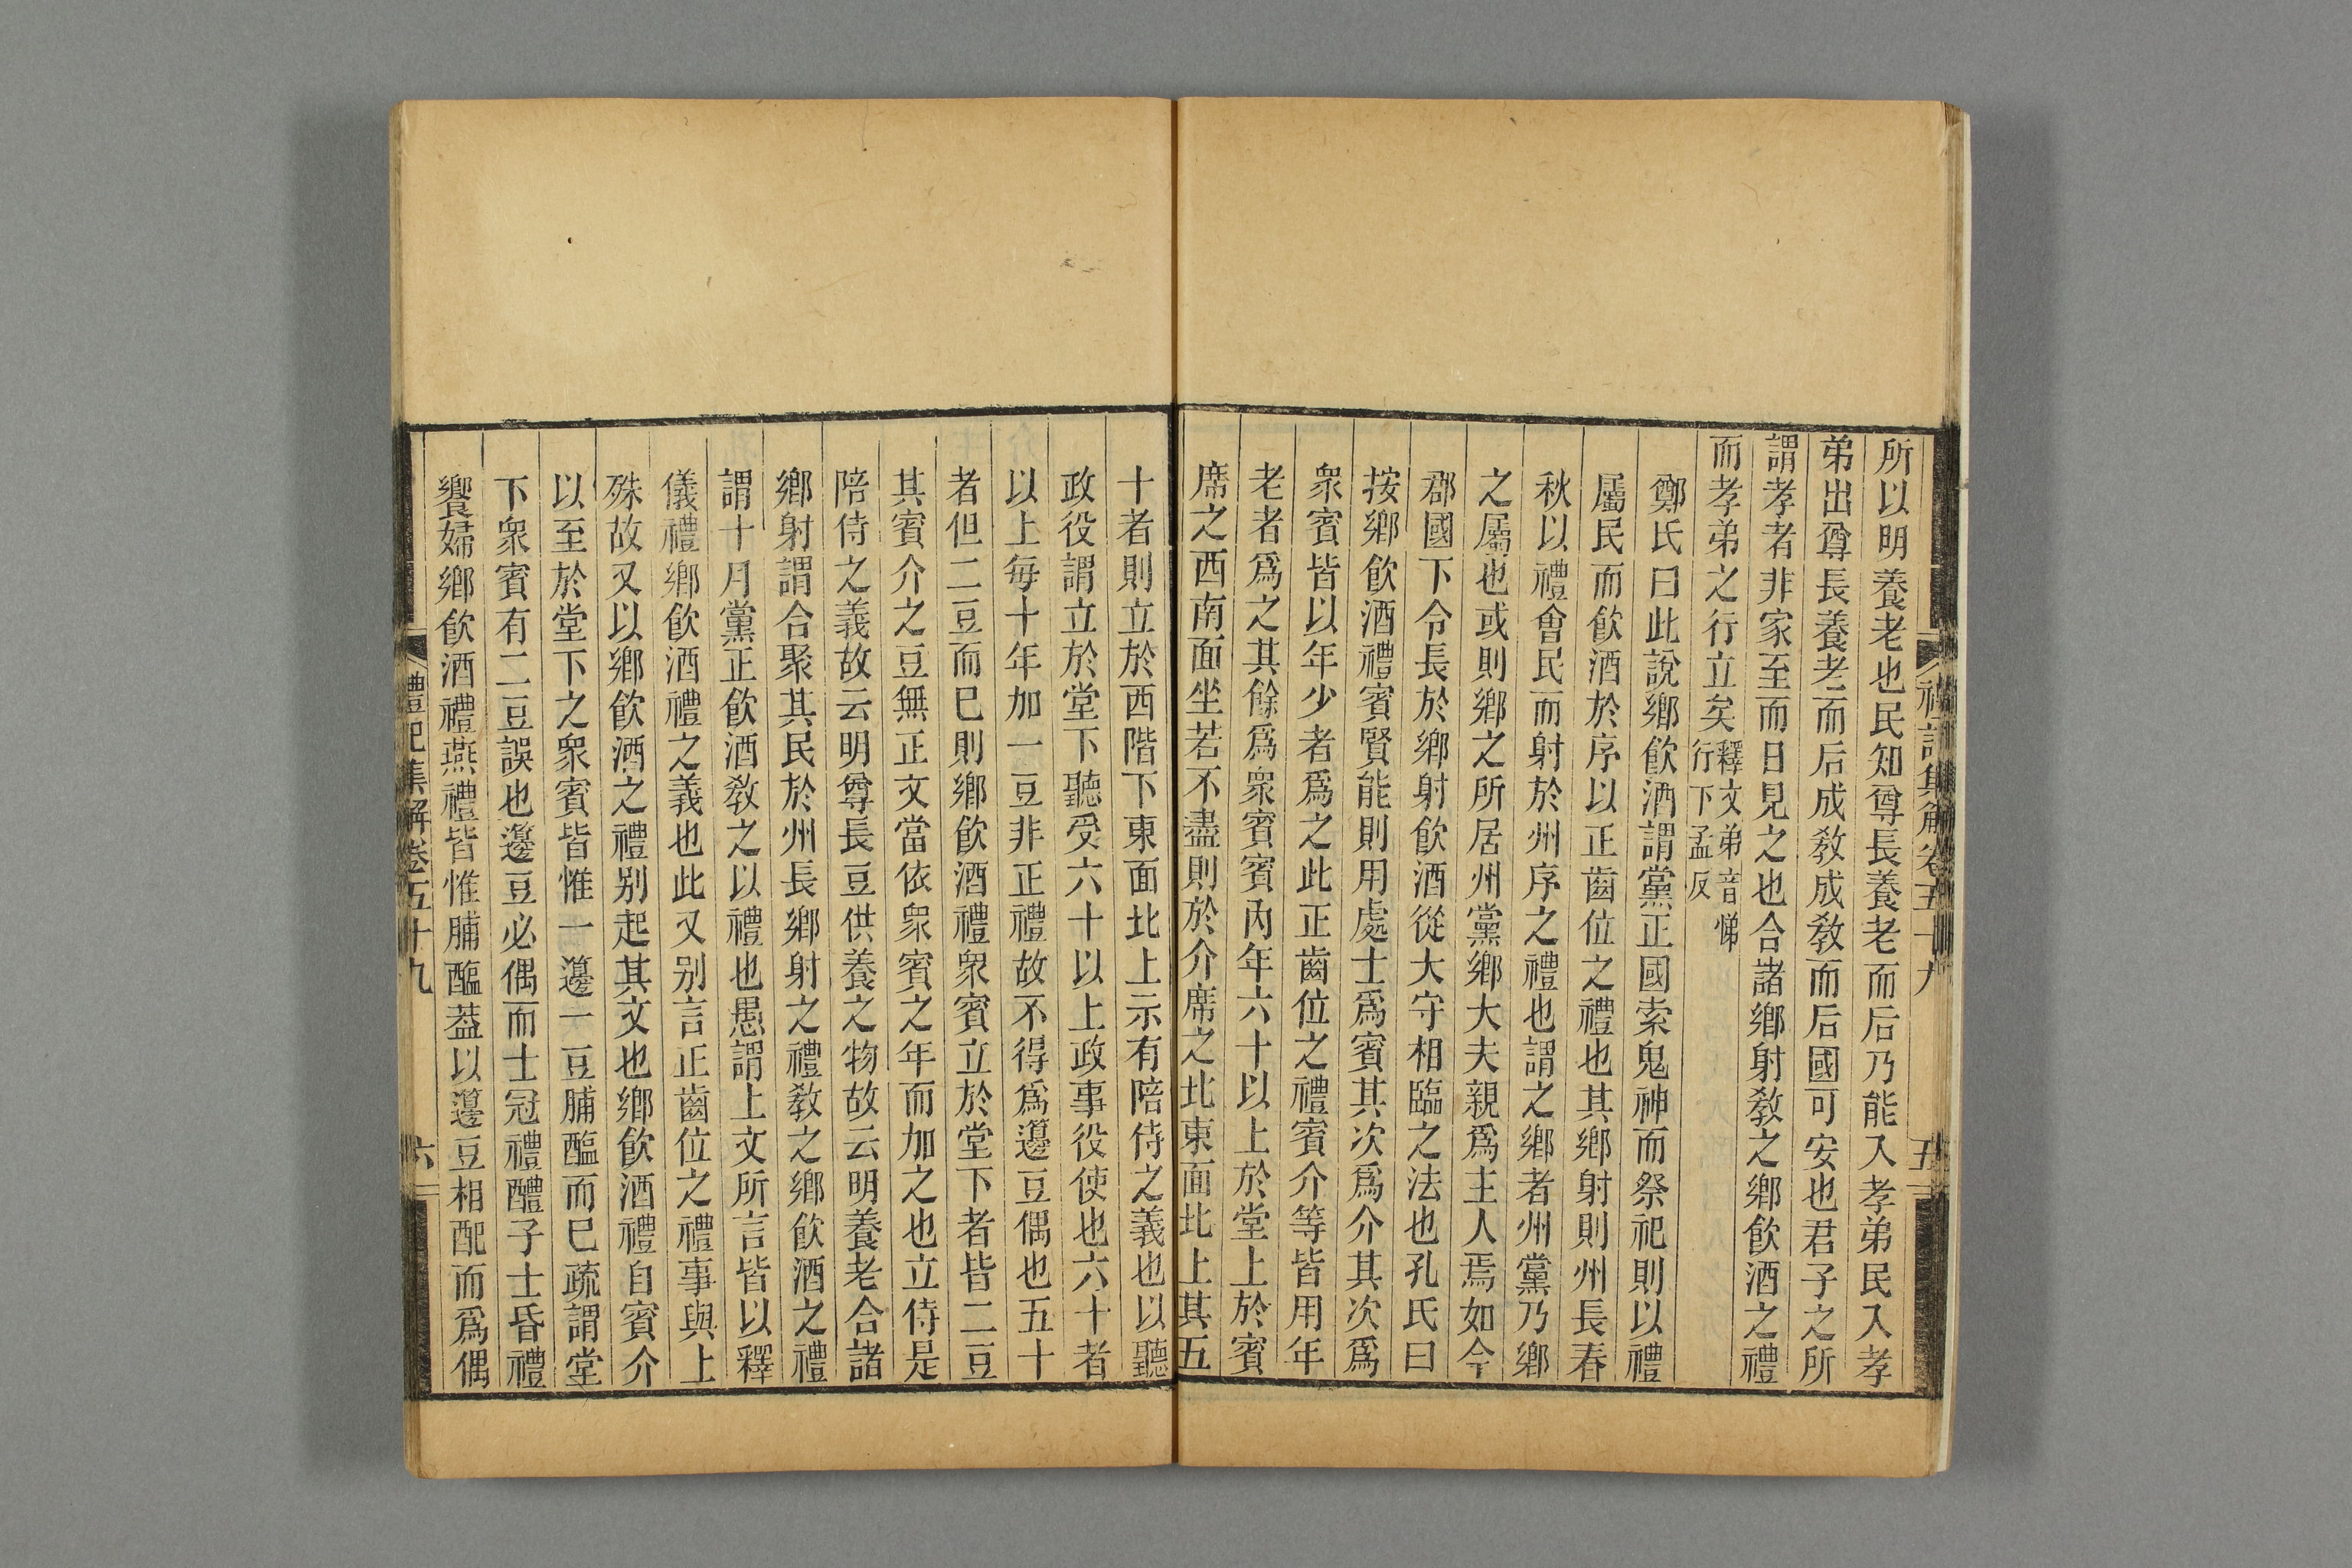 禮記集解卷五十九
五
所以明養老也民知尊長養老而后乃能入孝弟民入孝
弟出尊長養老而后成教成教而后國可安也君子之所
謂孝者非家至而日見之也合諸鄉射教之鄉飲酒之禮
而孝弟之行立矣釋文弟音悌
行下孟反
鄭氏曰此說鄉飲酒謂黨正國索鬼神而祭祀則以禮
屬民而飲酒於序以正齒位之禮也其鄉射則州長春
秋以禮會民而射於州序之禮也謂之鄉者州黨乃鄉
之屬也或則鄉之所居州黨鄉大夫親爲主人焉如今
郡國下令長於鄉射飲酒從大守相臨之法也孔氏曰
按鄉飲酒禮賓賢能則用處士爲賓其次爲介其次爲
衆賓皆以年少者爲之此正齒位之禮賓介等皆用年
老者爲之其餘爲衆賓賓內年六十以上於堂上於賓
席之西南面坐若不盡則於介席之北東面北上其五
十者則立於西階下東面北上示有陪侍之義也以聽
政役謂立於堂下聽受六十以上政事役使也六十者
以上每十年加一豆非正禮故不得爲籩豆偶也五十
者但二豆而巳則鄉飲酒禮衆賓立於堂下者皆二豆
其賓介之豆無正文當依衆賓之年而加之也立侍是
陪侍之義故云明尊長豆供養之物故云明養老合諸
鄉射謂合聚其民於州長鄉射之禮教之鄉飲酒之禮
謂十月黨正飲酒教之以禮也愚謂上文所言皆以釋
儀禮鄉飲酒禮之義也此又别言正齒位之禮事與上
殊故又以鄉飲酒之禮别起其文也鄉飲酒禮自賓介
以至於堂下之衆賓皆惟一籩一豆脯醢而巳疏謂堂
下衆賓有二豆誤也籩豆必偶而士冠禮醴子士昏禮
饗婦鄉飲酒禮燕禮皆惟脯醢葢以籩豆相配而爲偶
禮記集解卷五十九
六